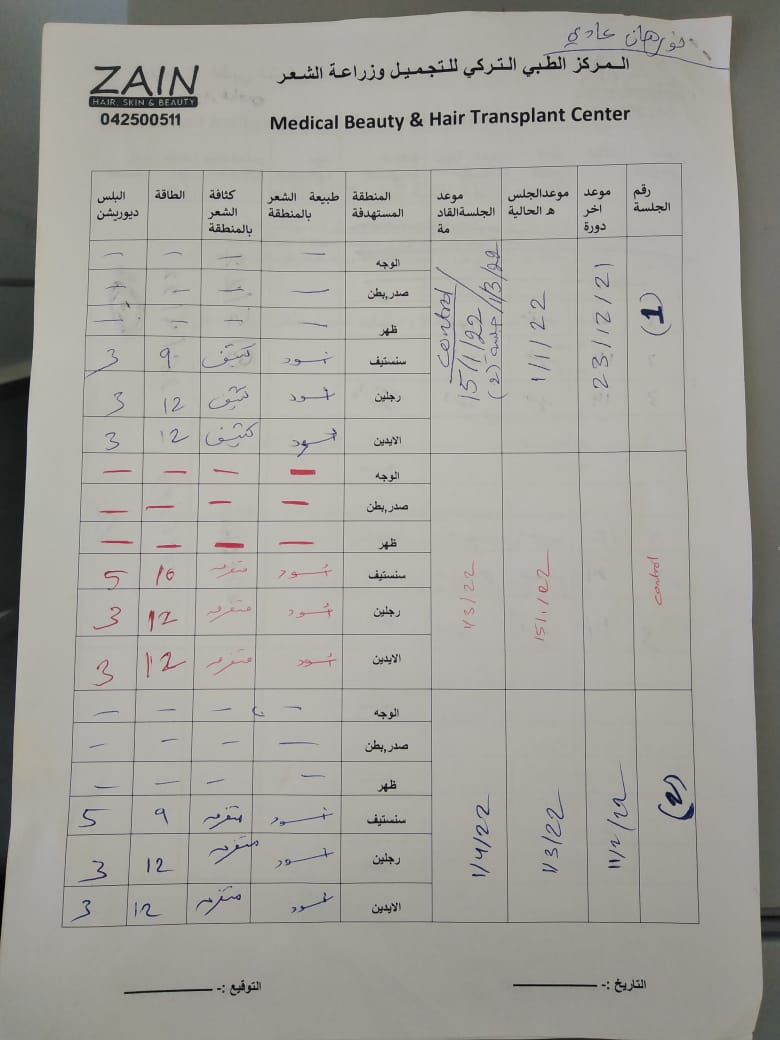 نورهان عادي
ZAIN
HAIR, SKIN & BEAUTY
042500511
المركز الطبي التركي للتجميل وزراعة الشعر
Medical Beauty & Hair Transplant Center
رقم الجلسة | موعد اخر دورة | موعدالجلس ه الحالية | موعد الجلسةالقاد مة | المنطقة المستهدفة | طبيعة الشعر بالمنطقة | كثافة الشعر بالمنطقة | الطاقة | البلس ديوريشن
(1) | 23/12/21 | 1/1/22 | control / 15/1/22 (2) جلسة 1/3/22
الوجه | — | — | — | —
صدر,بطن | — | — | — | —
ظهر | — | — | — | —
سنستيف | اسود | كثيف | 9 | 3
رجلين | اسود | كثيف | 12 | 3
الايدين | اسود | كثيف | 12 | 3
control | 15/1/22 | 1/3/22
الوجه | — | — | — | —
صدر,بطن | — | — | — | —
ظهر | — | — | — | —
سنستيف | اسود | متفرقه | 10 | 5
رجلين | اسود | متفرقه | 12 | 3
الايدين | اسود | متفرقه | 12 | 3
(2) | 11/2/22 | 1/3/22 | 1/4/22
الوجه | — | — | — | —
صدر,بطن | — | — | — | —
ظهر | — | — | — | —
سنستيف | اسود | متفرقه | 9 | 5
رجلين | اسود | متفرقه | 12 | 3
الايدين | اسود | متفرقه | 12 | 3
التاريخ :- ــــــــ التوقيع :- ــــــــ